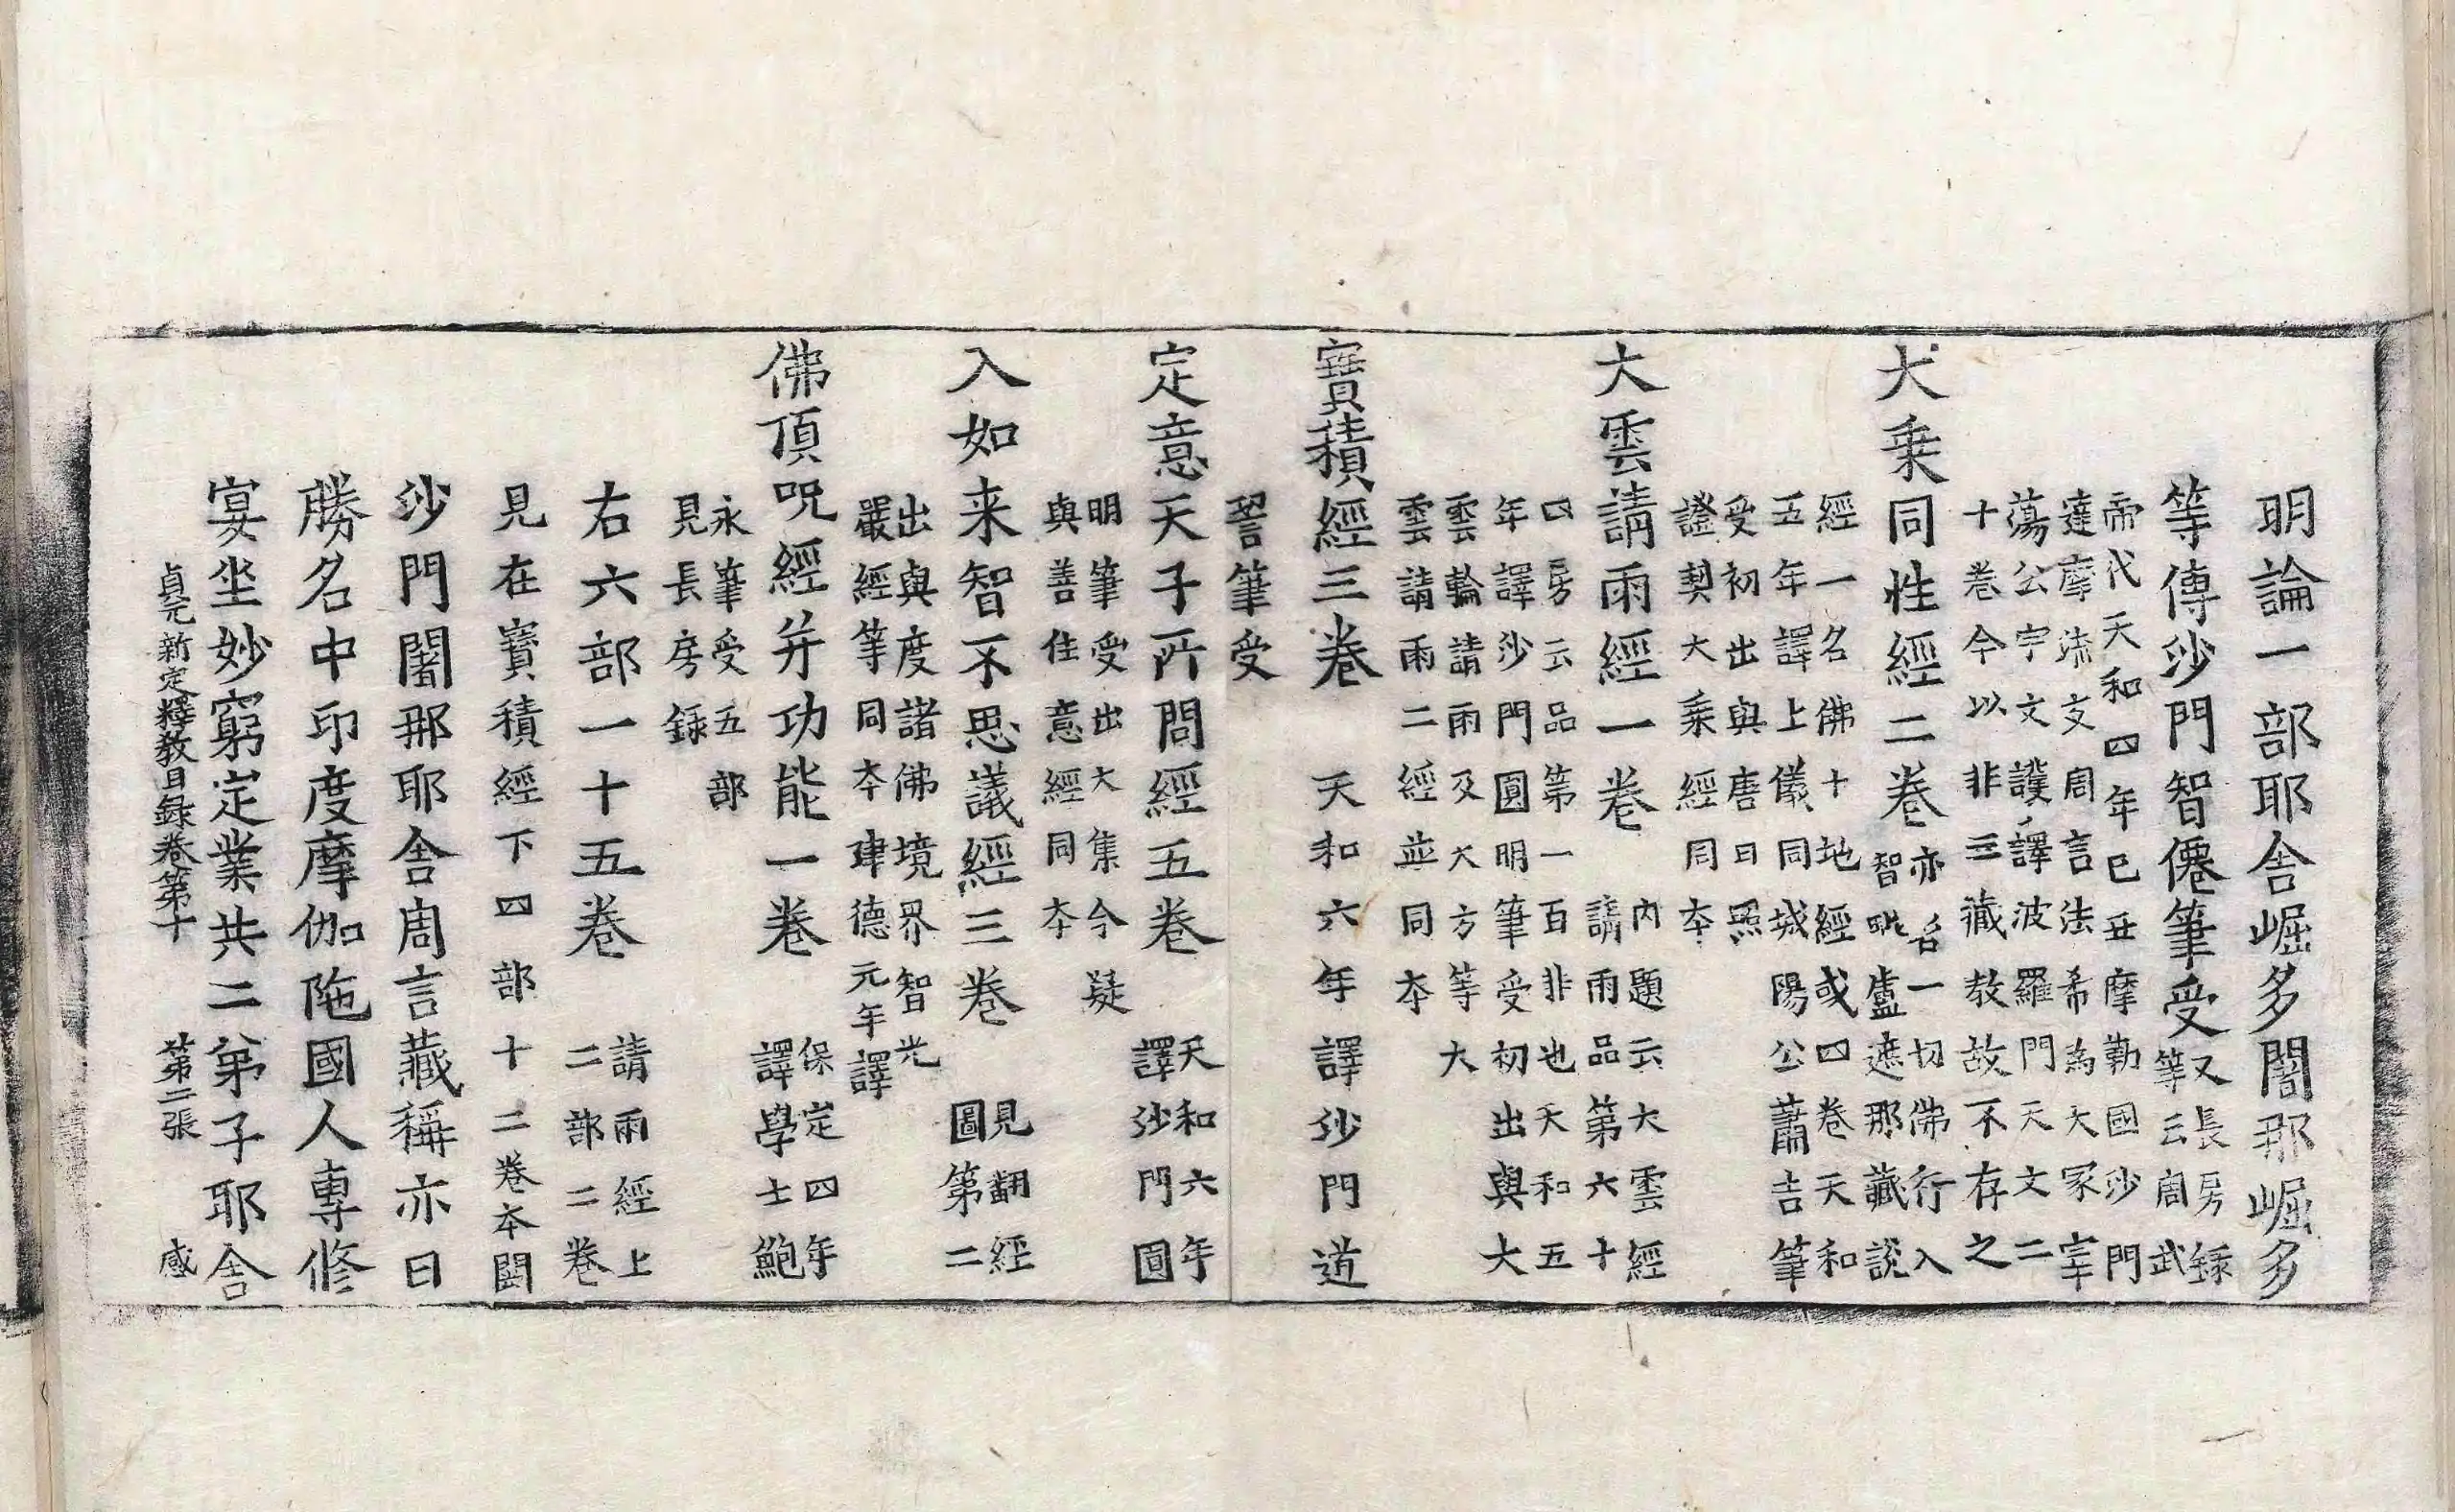 明論一部耶舍崛多闍那崛多
等傳沙門智僊筆受又長房録
等云周武
帝代天和四年已丑摩勒國沙門
達摩流支周言法希為大冢宰
蕩公宇文護譯波羅門天文二
十卷今以非三藏教故不存之
大乗同性經二卷亦名一切佛行入
智毗盧遮那藏說
經一名佛十地經或四卷天和
五年譯上儀同城陽公蕭吉筆
受初出與唐日照
證契大乗經同夲
大雲請雨經一卷内題云大雲經
請雨品第六十
四房云品第一百非也天和五
年譯沙門圓明筆受初出與大
雲輪請雨及大方等大
雲請雨二經並同夲
寶積經三卷天和六年譯沙門道
詧筆受
定意天子所問經五卷天和六年
譯沙門圓
明筆受出大集今疑
與善住意經同夲
入如来智不思議經三卷見翻經
圖第二
出與度諸佛境界智光
嚴經等同夲建德元年譯
佛頂呪經并功能一卷保定四年
譯學士鮑
永筆受五部
見長房録
右六部一十五卷請雨經上
二部二卷
見在寶積經下四部十二卷夲闕
沙門闍那耶舍周言藏稱亦曰
勝名中印度摩伽陁國人專修
宴坐妙窮定業共二弟子耶舍
貞元新定釋教目録卷第十　第二張　感